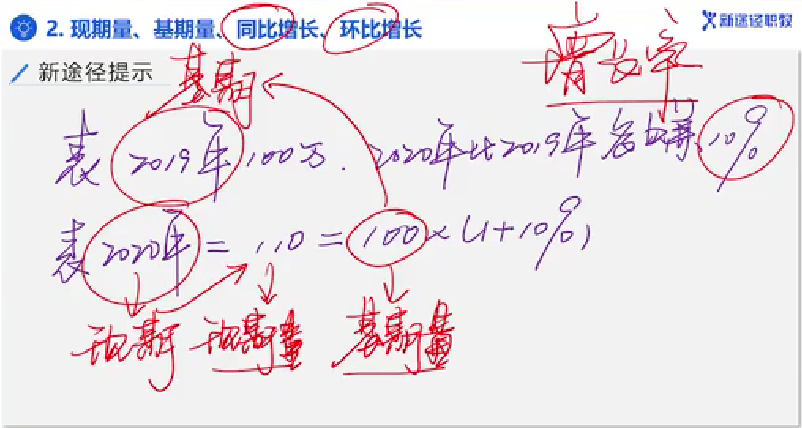 2. 现期量、基期量、同比增长、环比增长
新途径职教
新途径提示
增长率
基期
袁 2019年 100万. 2020年比2019年 10%
袁 2020年 = 110 = 100 × (1+10%)
现期 现期量 基期量